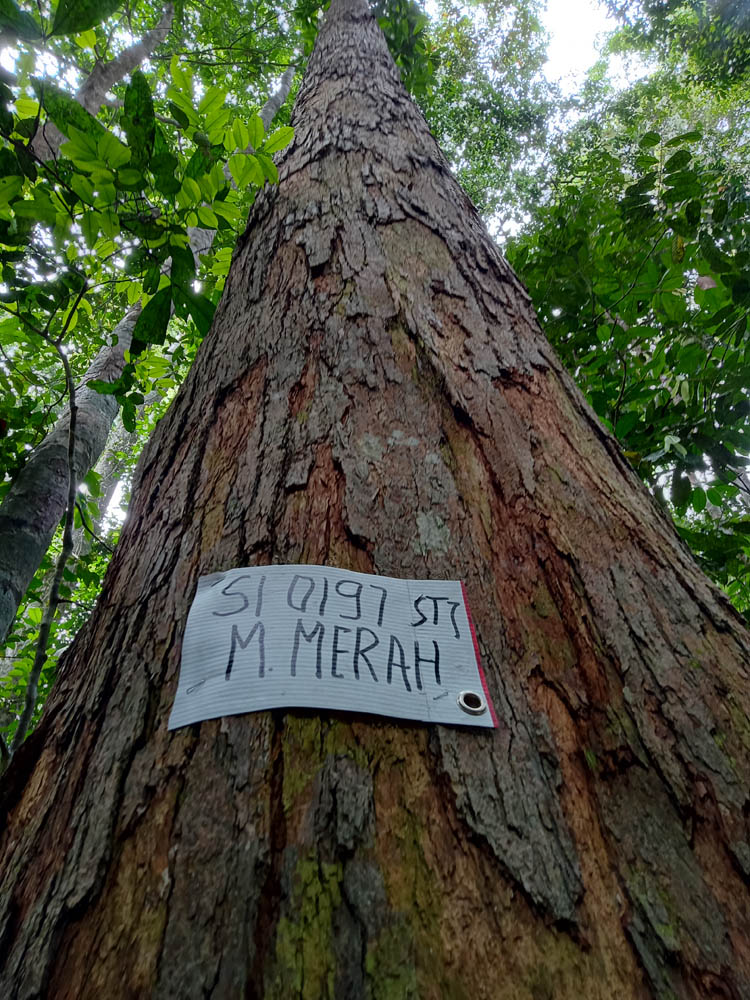 SI 0197 ST7
M. MERAH